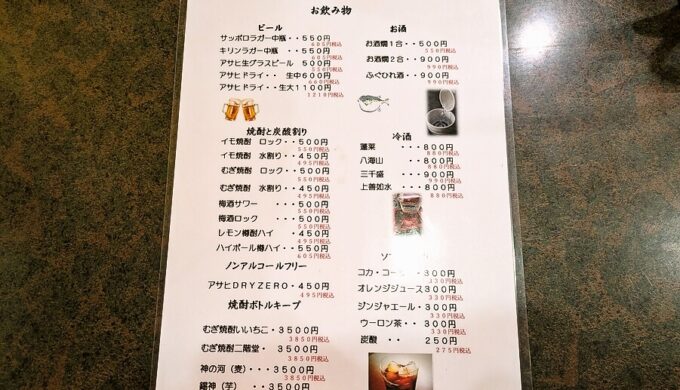 お飲み物
ビール
サッポロラガー中瓶・・５５０円
605円税込
キリンラガー中瓶　・・５５０円
605円税込
アサヒ生グラスビール　５００円
550円税込
アサヒドライ・・　生中６００円
660円税込
アサヒドライ・・生大１１００円
1210円税込
焼酎と炭酸割り
イモ焼酎　ロック・・５００円
550円税込
イモ焼酎　水割り・・４５０円
495円税込
むぎ焼酎　ロック・・５００円
550円税込
むぎ焼酎　水割り・・４５０円
495円税込
梅酒サワー　・・・５００円
550円税込
梅酒ロック　・・・５００円
550円税込
レモン樽酎ハイ　・４５０円
495円税込
ハイボール樽ハイ・・５５０円
605円税込
ノンアルコールフリー
アサヒＤＲＹＺＥＲＯ・４５０円
495円税込
焼酎ボトルキープ
むぎ焼酎いいちこ・３５００円
3850円税込
むぎ焼酎二階堂・　３５００円
3850円税込
神の河（麦）・・・３５００円
3850円税込
（芋）・・３５００円
お酒
お酒燗１合・・５００円
550円税込
お酒燗２合・・９００円
990円税込
ふぐひれ酒・・９００円
990円税込
冷酒
蓬莱　・・・８００円
880円税込
八海山　・・８００円
880円税込
三千盛　・・９００円
990円税込
上善如水・・８００円
880円税込
ソ
コカ・コー　３００円
330円税込
オレンジジュース３００円
330円税込
ジンジャエール・３００円
330円税込
ウーロン茶・・３００円
330円税込
炭酸　・・　２５０円
275円税込